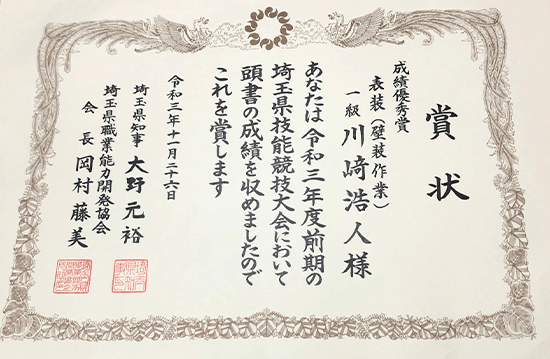 賞状
成績優秀賞
表装(壁装作業)
一級 川﨑浩人様
あなたは令和三年度前期の
埼玉県技能競技大会において
頭書の成績を収めましたので
これを賞します
令和三年十一月二十六日
埼玉県知事 大野元裕
埼玉県職業能力開発協会
会長 岡村藤美